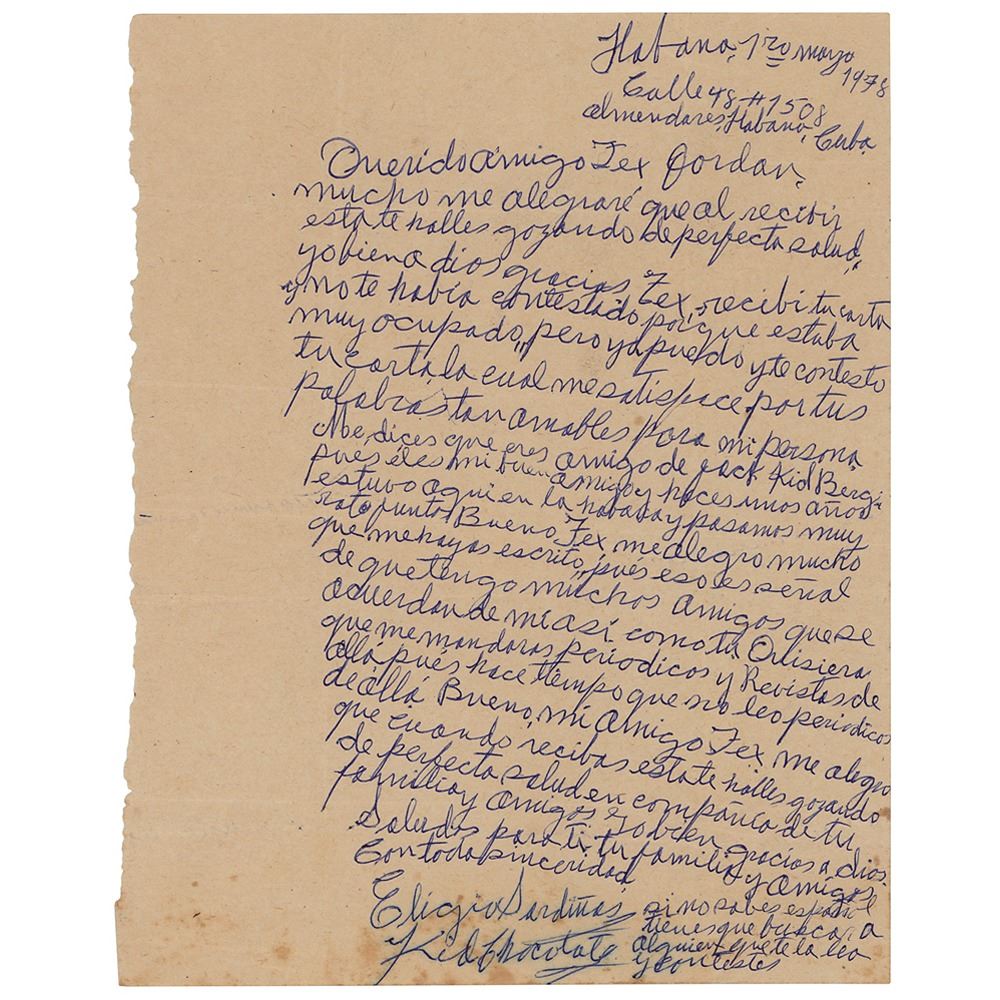 Habana, 1ro mayo
1978
Calle 48 #1508
almendares, Habana, Cuba,
Querido amigo Tex Jordan,
mucho me alegraré que al recibir
esta te halles gozando de perfecta salud,
yo bien a dios gracias, Tex, recibi tu carta
y no te había contestado porque estaba
muy ocupado, pero ya puedo y te contesto
tu carta, la cual me satisface, por tus
palabras tan amables para mi persona,
Me, dices que eres amigo de Jack Kid Berg,
pues el es mi buen amigo y haces unos años
estuvo aqui en la habana y pasamos muy
rato junto, Bueno, Tex, me alegro mucho
que me hayas escrito, pués eso es señal
de que tengo muchos amigos que se
acuerdan de mi así como tu Quisiera
que me mandaras periodicos y Revistas de
állá, pués hace tiempo que no leo periodicos
de állá Bueno, mi amigo Tex me alegro
que cuando recibas esta te halles gozando
de perfecta salud en compánia de tu
familia y amigos yo bien gracias a dios,
Saludos para ti, tu familia y amigos,
Con toda sinceridad,
Eligio Sardiñas
Kid Chocolate
si no sabes español
tienes que buscar a
alguien que te la lea
y contestes